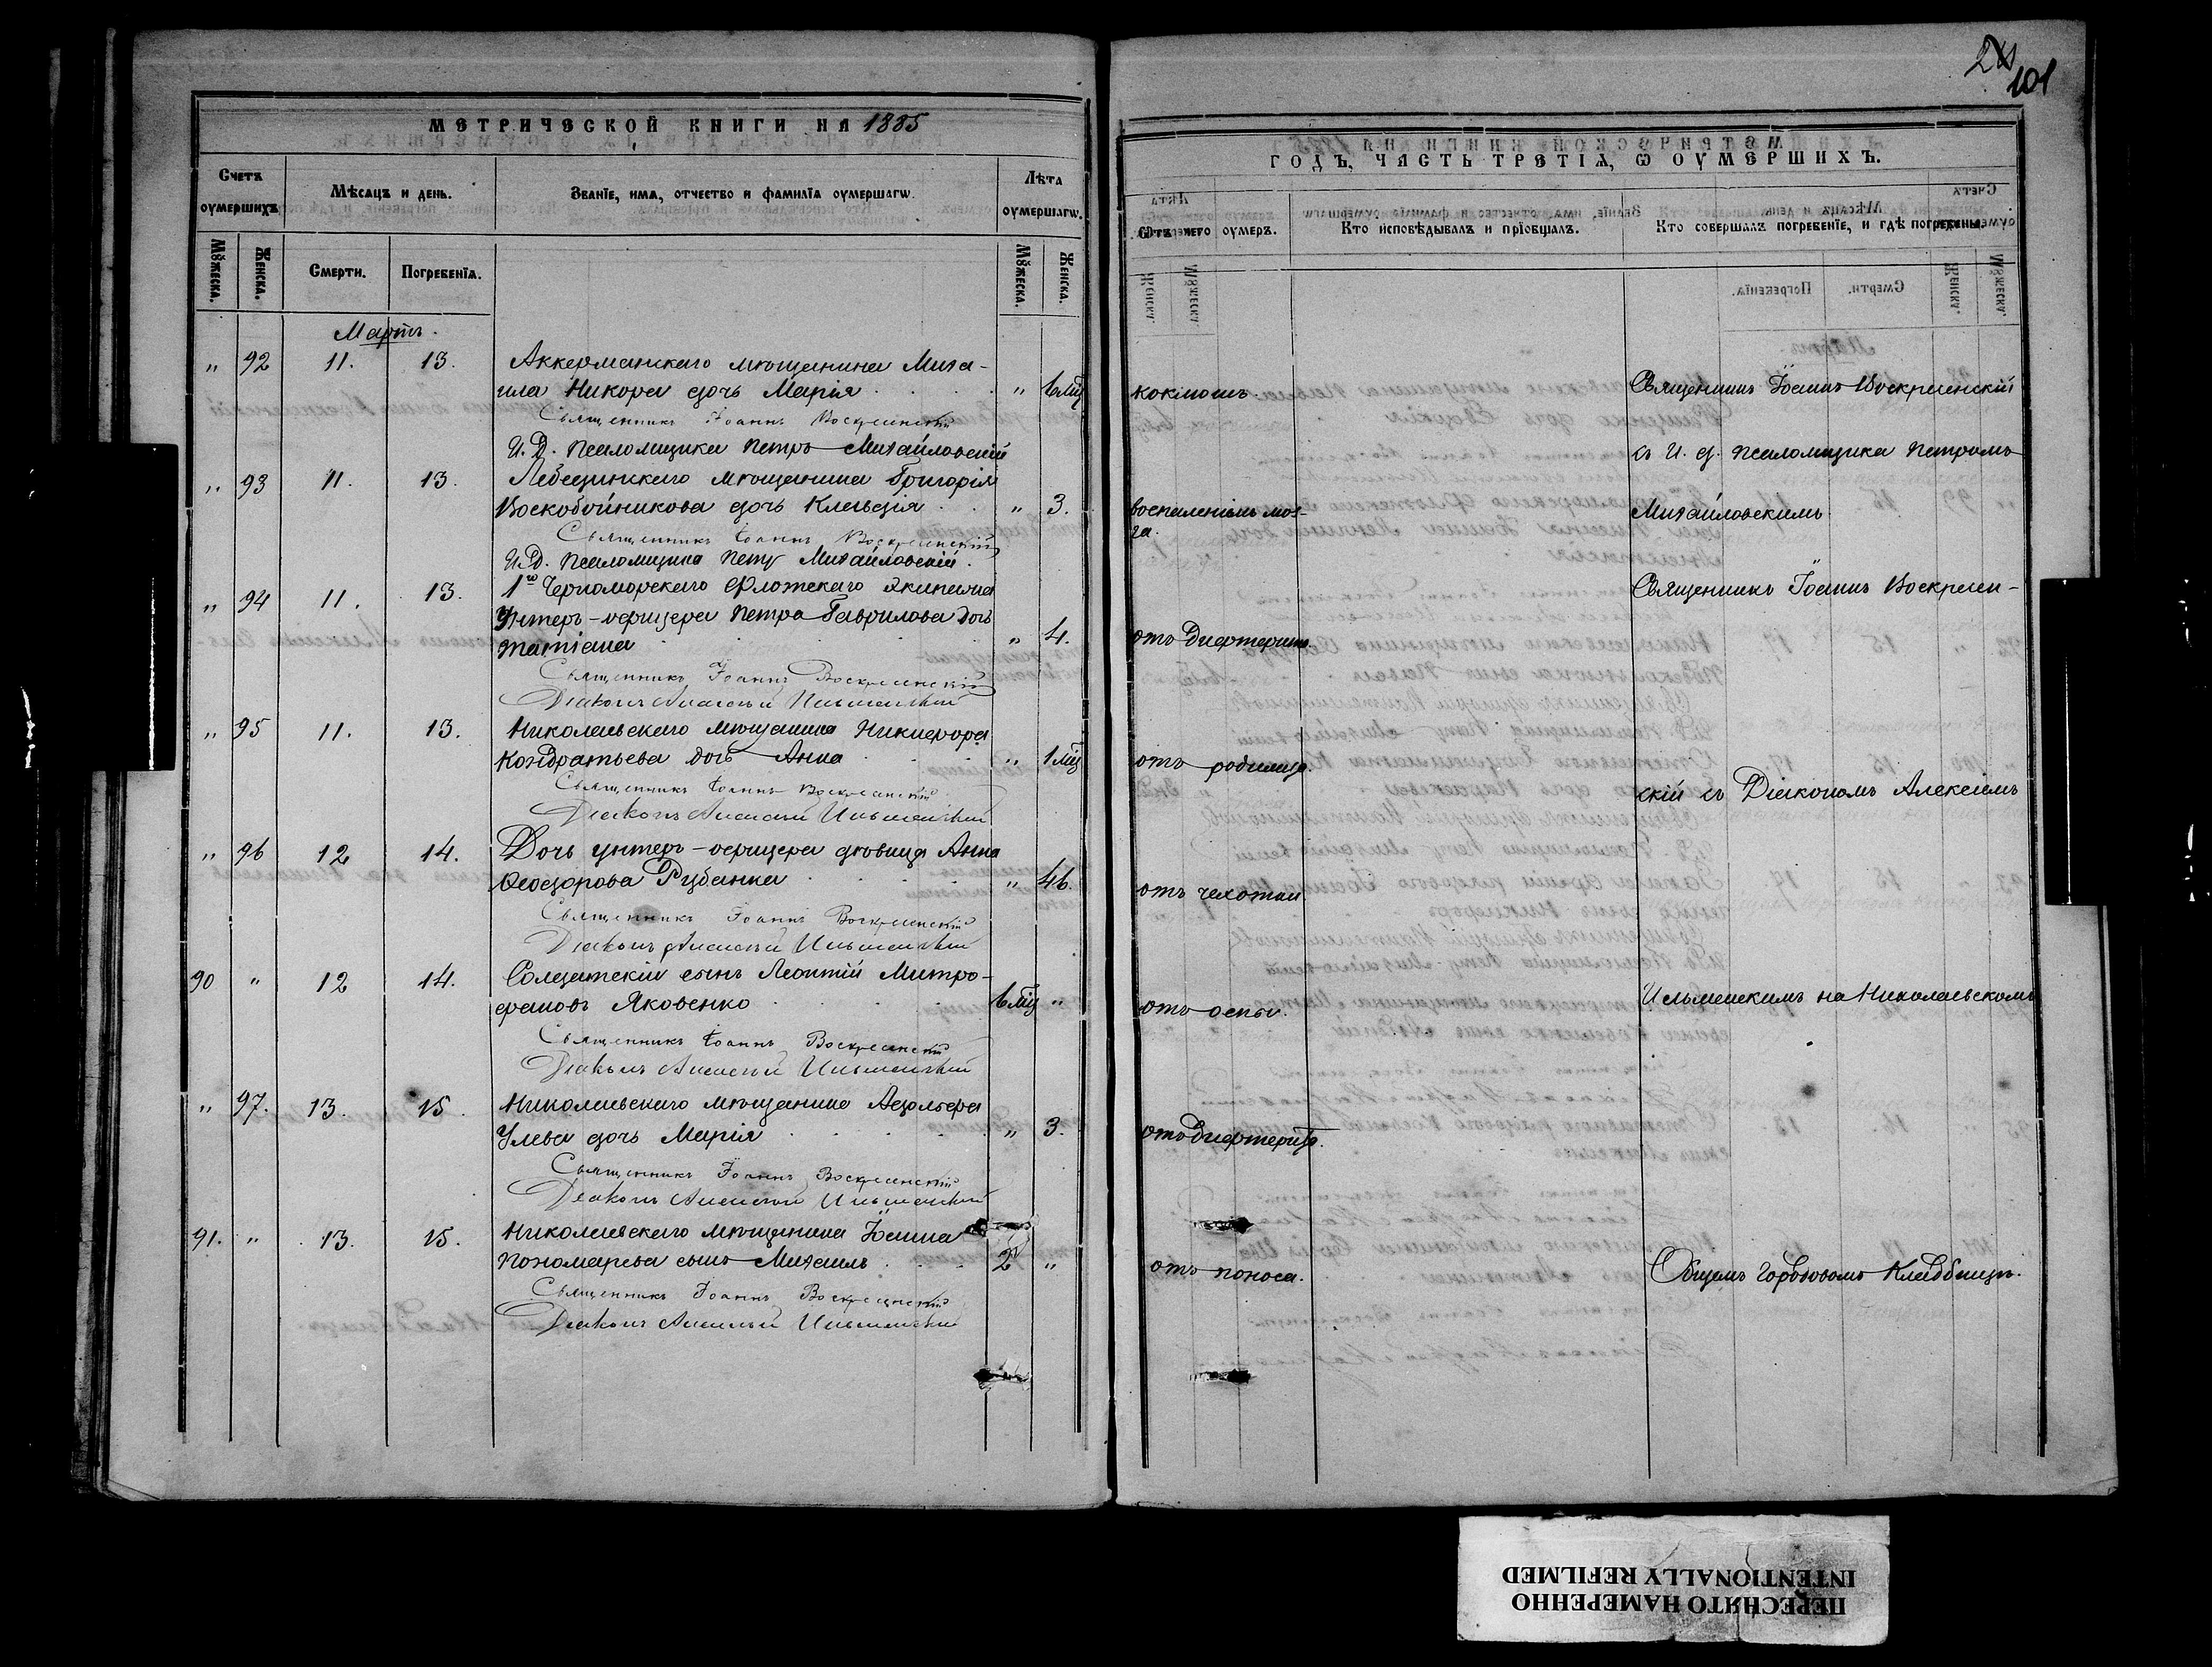 МЕТРИЧЕСКОЙ КНИГИ НА 1885
Счетъ оумершихъ.
Мѣсяцъ и день.
Званїе, имя, отчество и фамилїа оумершагѡ.
Лѣта оумершагѡ.
Мꙋжеска.
Женска.
Смерти.
Погребенїя.
Мꙋжеска.
Женска.
Мартъ.
" 92 11. 13. Аккерманскаго мѣщанина Миха-
ила Никора дочь Марія " 6 мѣц
Священникъ Іоаннъ Воскресенскій
И. Д. Псаломщика Петръ Михайловскій
" 93 11. 13. Лебединскаго мѣщанина Григорія
Воскобойникова дочь Клавдія " 3.
Священникъ Іоаннъ Воскресенскій
И. Д. Псаломщика Петр Михайловскій.
" 94 11. 13. 1го Черноморскаго Флотскаго Экипажа
Унтеръ-офицера Петра Гаврилова дочь
Татіана " 4.
Священникъ Іоаннъ Воскресенскій
Діаконъ Алексѣй Ильменскій
" 95 11. 13. Николаевскаго мѣщанина Никифора
Кондратьева дочь Анна " 1 мѣц
Священникъ Іоаннъ Воскресенскій
Діаконъ Алексѣй Ильменскій
" 96 12 14. Дочь унтеръ-офицера дѣвица Анна
Феодорова Рубанка " 46.
Священникъ Іоаннъ Воскресенскій
Діаконъ Алексѣй Ильменскій
90 " 12 14. Солдатскій сынъ Леонтій Митро-
фановъ Яковенко 6 мѣц "
Священникъ Іоаннъ Воскресенскій
Діаконъ Алексѣй Ильменскій
" 97. 13. 15. Николаевскаго мѣщанина
дочь Марія " 3.
Священникъ Іоаннъ Воскресенскій
Діаконъ Алексѣй Ильменскій
91. " 13. 15. Николаевскаго мѣщанина Іоанна
Пономарева сынъ Михаилъ 2 "
Священникъ Іоаннъ Воскресенскій
Діаконъ Алексѣй Ильменскій
101
ГОДЪ, ЧАСТЬ ТРЕТІЯ, Ѡ ОУМЕРШИХЪ.
Ѿ чего оумеръ.
Кто исповѣдывалъ и прїобщалъ.
Кто совершалъ погребенїе, и гдѣ погребены.
коклюшъ.
Священникъ Іоаннъ Воскресенскій
съ И. д. псаломщика Петромъ
воспаленіемъ моз-
га.
Михайловскимъ
Священникъ Іоаннъ Воскресен-
отъ дифтерита.
отъ родимца.
скій съ Діакономъ Алексіемъ
отъ чахотки
отъ оспы.
Ильменскимъ на Николаевскомъ
отъ дифтерита.
отъ поноса.
Общемъ Городовомъ Кладбищѣ.
ПЕРЕСНЯТО НАМЕРЕННО
INTENTIONALLY REFILMED